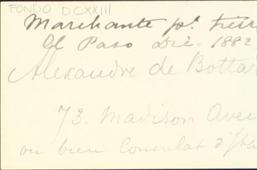 FONDO DCXXIII
Marchante pt.
El Paso Dic. 1882
Alexandre de Bottar
73. Madison Aven
ou bien Consulat d'Ita